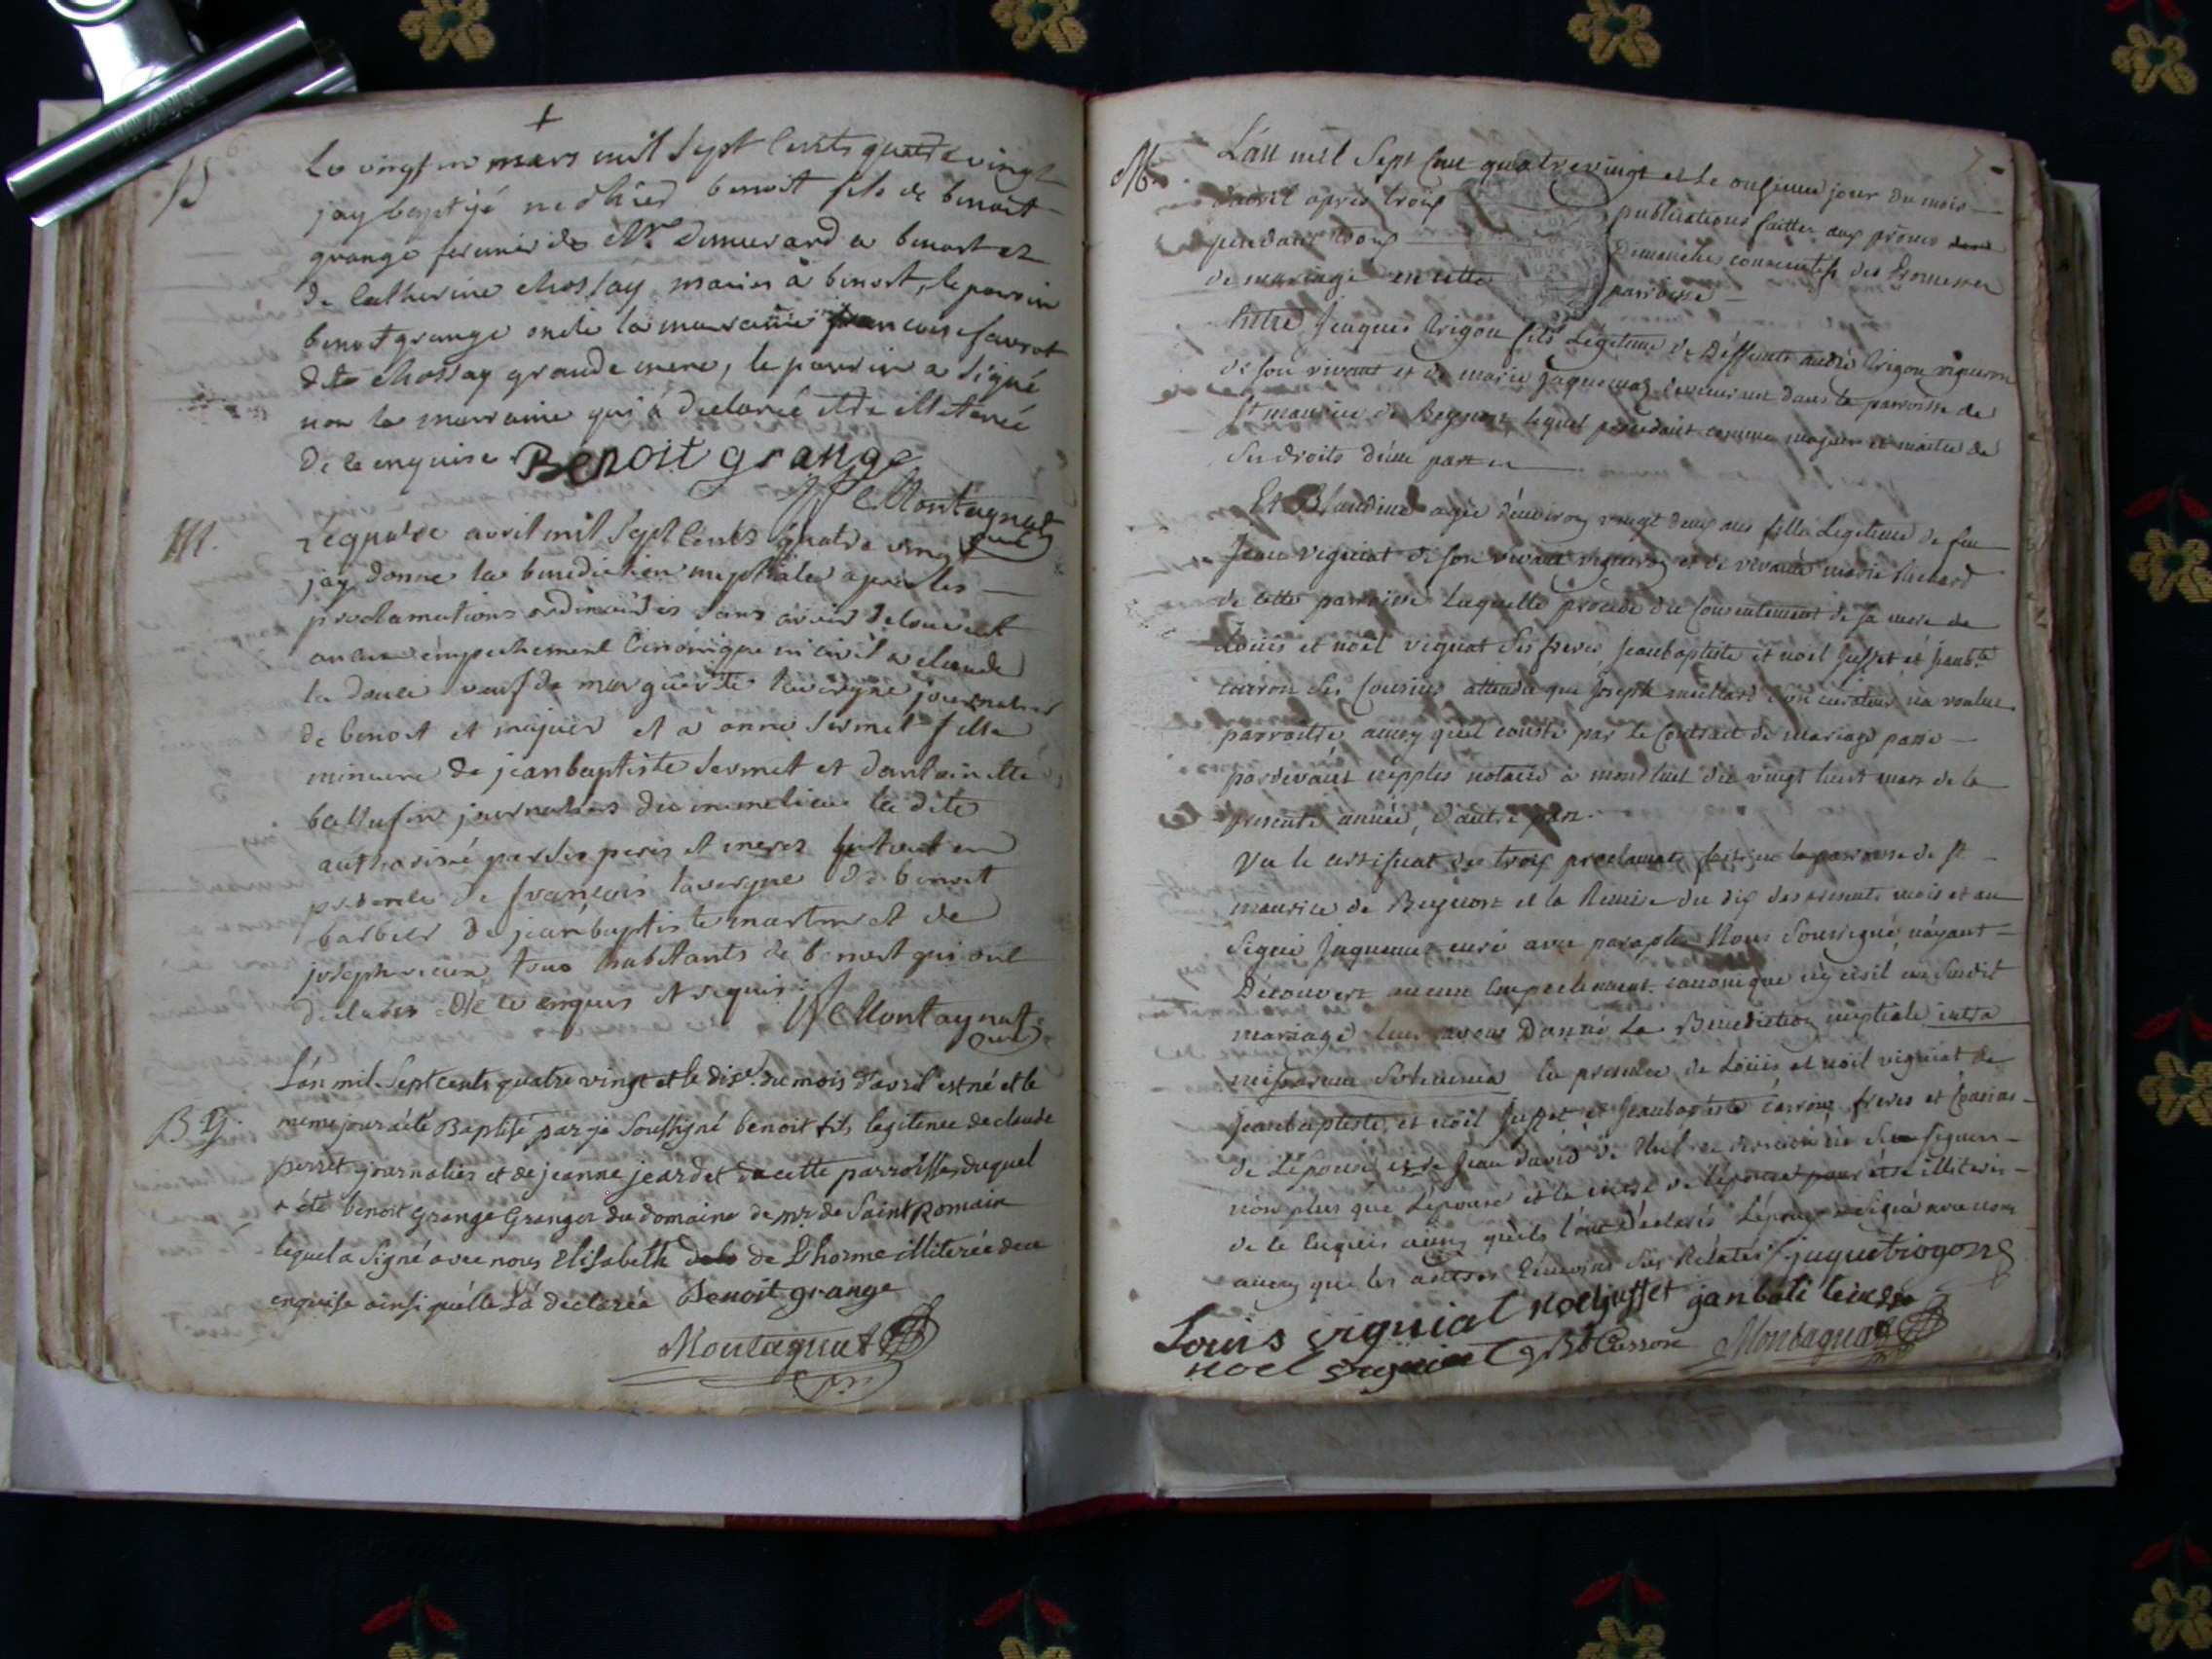 B
Le vingt un mars mil sept cents quatre vingt
jay baptisé né d'hier benoit fils de benoit
grange fermier de Mr a benost et
de Catherine chossay mariés à benost, le parrin
benoit grange oncle la marraine francoise favrot
dite chossay grande mere, le parrin a signé
non la marraine qui a declarée etre illiterée
de ce enquise Benoit grange
Montagnat
curé
M.
Le quatre avril mil sept cents quatre vingt
jay donné la benediction nuptiale apres les
proclamations ordinaires sans avoir decouvert
aucun empechement canonique ni civil a claude
la douce veuf de marguerite lavergne journalier
de benost et majeur et a anne sermet fille
mineure de jeanbaptiste sermet et dantoinette
journaliers du meme lieu la dite
authorisée par ses peres et meres le tout en
presence de francois lavergne de benoit
barbier de jeanbaptiste martin et de
joseph tous habitants de benost qui ont
declarés de ce enquis et requis Montagnat
curé
L'an mil sept cents quatre vingt et le dixe. du mois d'avril est né et le
B
meme jour a été Baptisé par je soussigné benoit fils legiteme de claude
perret journalier et de jeanne jeardet de cette parroisse, duquel
a été benoit grange Granger du domaine de mr de Saint Romain
lequel a signé avec nous Elisabeth de Lhorme illiterée de ce
enquise ainsi quélle La declarée Benoit grange
Montagnat
7
M.
L'an mil sept cent quatrevingt et le onzieme jour du mois
davril apres trois publications faittes aux prones
pendant trois Dimanche consecutifs des Promesses
de mariage en cette parroisse
Entre Jaques trigon fils Legiteme de Deffunt andré trigon vigneron
de son vivant et de marie jaquemaz demeurant dans la parroisse de
St maurice de Beynost lequel procedant comme majeur et maitre de
ses droits d'une part
Et Blandine agée d'environ vingt deux ans fille Legiteme de feu
Jean vigniat de son vivant vigneron et de vivante marie
de cette parroisse Laquelle procede du consentement de sa mere de
Louis et noël vigniat ses freres, Jeanbaptiste et noël jusset et Jeanbte
carron ses cousins attendu que joseph son curateur n'a voulue
parroitre ainsy quil conste par le contract de mariage passé
pardevant notaire à montluel du vingt huit mars de la
presente année, d'autre part.
Vu le certificat des trois proclamats faits en la parroisse de St
maurice de Beynost et la Remise du dix des presents mois et an
signé jaquemet curé avec paraphe Nous soussigné n'ayant
Decouvert aucun Empechement canonique ny civil au susdit
mariage leur avons Donné La Benediction nuptiale intra
missarum solemnia En presence de Louis et noël vigniat de
jeanbaptiste, et noël jusset et Jeanbaptiste carron freres et cousins
de L'epouse et de Jean david
non plus que L'epouse et la mere de l'epouse pour etre illiterés
de ce enquis ainsy quils l'ont declarés L'epoux a signé avec nous
ainsy que les autres temoins jaque trigon
Louis vigniat noel jusset
noel vigniat Carron Montagnat